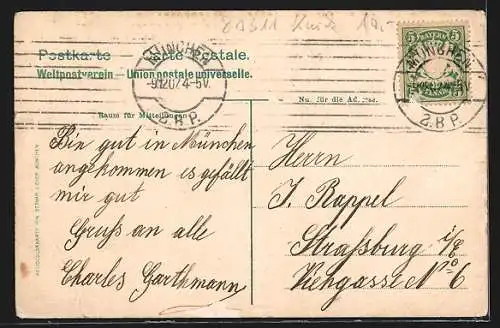 Postkarte — Carte postale.
Weltpostverein — Union postale universelle.
Raum für Mitteilungen
Nu. für die Ad
MÜNCHEN
4-5V.
2. B P.
BAYERN
5 5
MÜNCHEN
2. B P.
Bin gut in München
angekommen es gefällt
mir gut
Gruss an alle
Charles Garthmann
Herrn
J. Rappel
Straßburg i/E
Viehgasse No 6